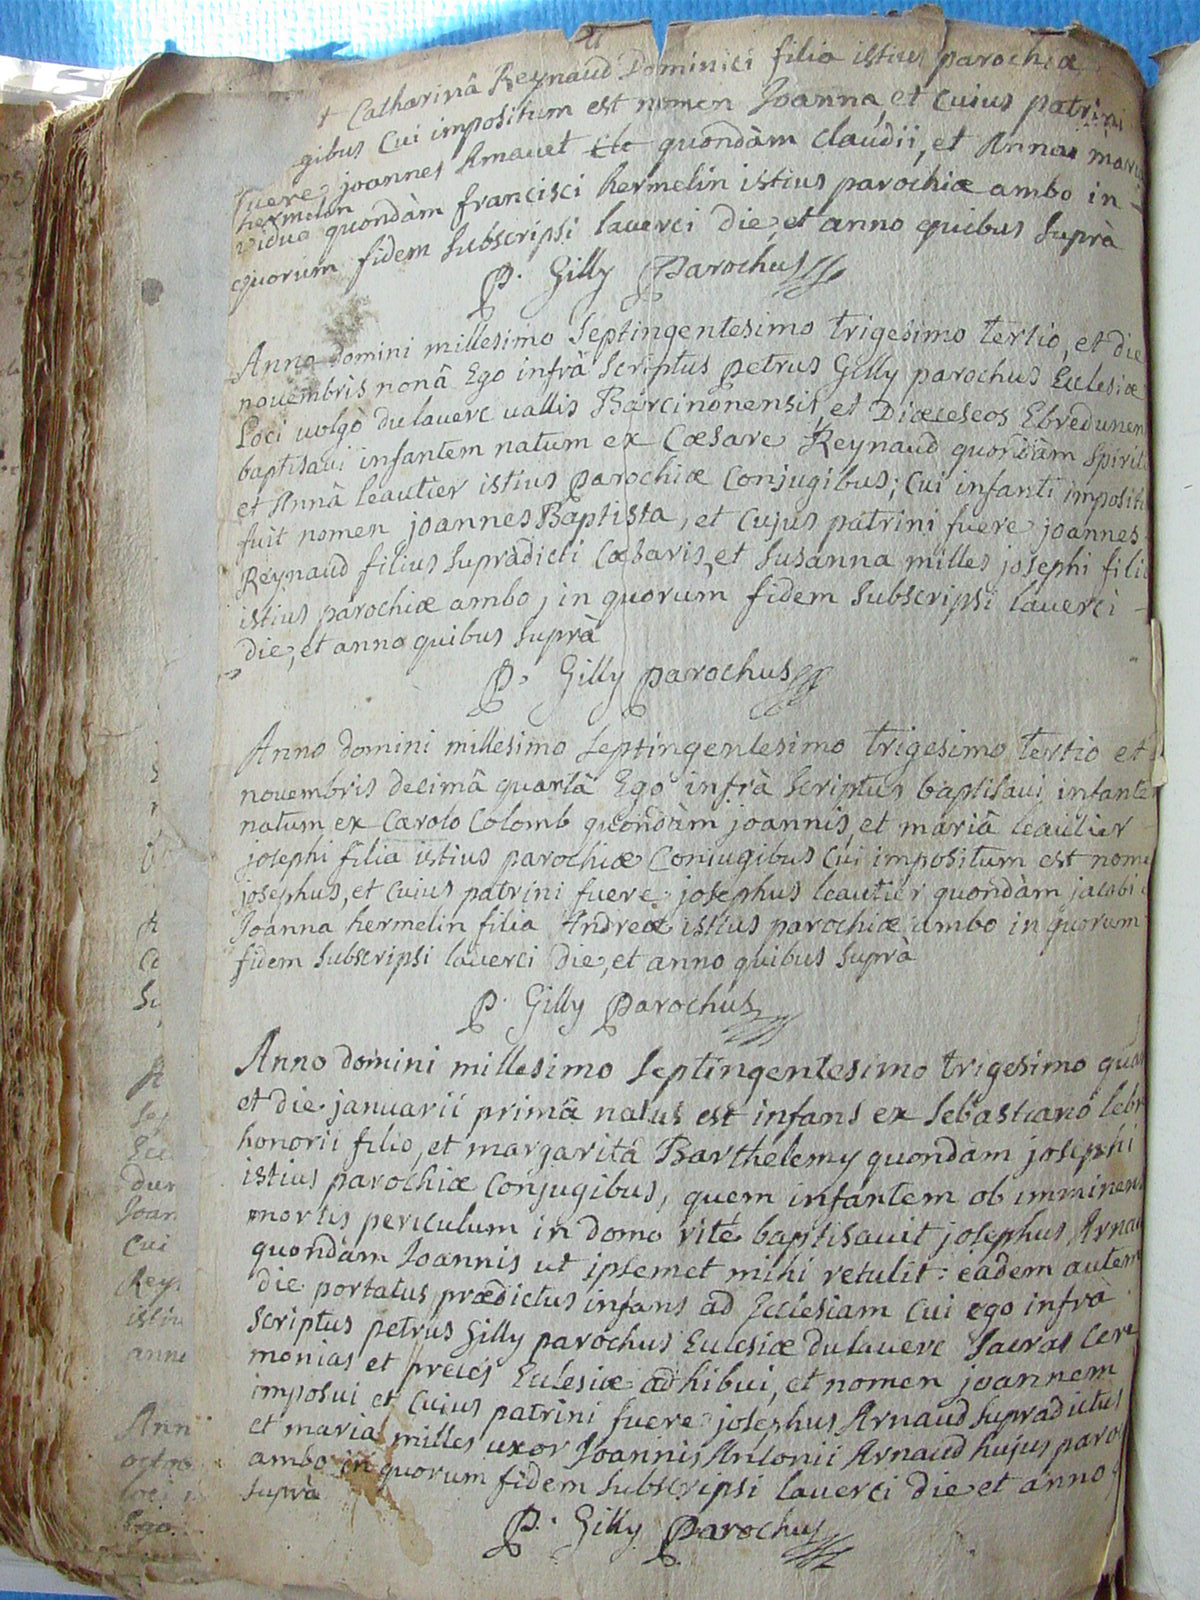 et Catharinâ Reynaud Dominici filia istius parochiæ
gibus Cui impositum est nomen Joanna, et Cuius patrini
fuere, joannes Amavet quondàm Claudii, et Anna mari
hermelin
vidua quondàm francisci hermelin istius parochiæ ambo in -
quorum fidem subscripsi laverci die, et anno quibus suprà
P. Gilly Parochus
Anno domini millesimo septingentesimo trigesimo tertio, et die
novembris nonâ Ego infrà scriptus petrus Gilly parochus Ecclesiæ
Loci vulgò du laverc vallis Barcinonensis, et Diœceseos Ebredunen
baptisavi infantem natum ex Cæsare Reynaud quondàm Spirit
et Annâ leautier istius parochiæ Conjugibus; Cui infanti imposit
fuit nomen joannes Baptista, et Cujus patrini fuere joannes
Reynaud filius supradicti Cæsaris, et susanna milles josephi fili
istius parochiæ ambo, in quorum fidem subscripsi laverci -
die, et anno quibus suprà
P. Gilly parochus
Anno domini millesimo septingentesimo trigesimo tertio et
novembris decimâ quartâ Ego infrà scriptus baptisavi infante
natum ex Carolo Colomb quondàm joannis, et mariâ leautier
josephi filia istius parochiæ Conjugibus Cui impositum est nome
josephus, et Cuius patrini fuere josephus leautier quondàm jacobi
Joanna hermelin filia Andreæ istius parochiæ ambo in quorum
fidem subscripsi laverci die, et anno quibus suprà
P. Gilly Parochus
Anno domini millesimo septingentesimo trigesimo quar
et die januarii primâ natus est infans ex sebastiano lebr
honorii filio, et margaritâ Barthelemy quondam josephi
istius parochiæ Conjugibus, quem infantem ob imminens
mortis periculum in domo ritè baptisavit josephus Arnau
quondàm Joannis ut ipsemet mihi retulit: eâdem autem
die portatus prædictus infans ad Ecclesiam Cui ego infrà
scriptus petrus Gilly parochus Ecclesiæ du laverc sacras Cere
monias et preces Eclesiæ adhibui, et nomen joannem
imposui et Cuius patrini fuere josephus Arnaud supradictus
et maria milles uxor Joannis Antonii Arnaud hujus paro
ambo in quorum fidem subscripsi laverci die et anno
suprà
P. Gilly Parochus